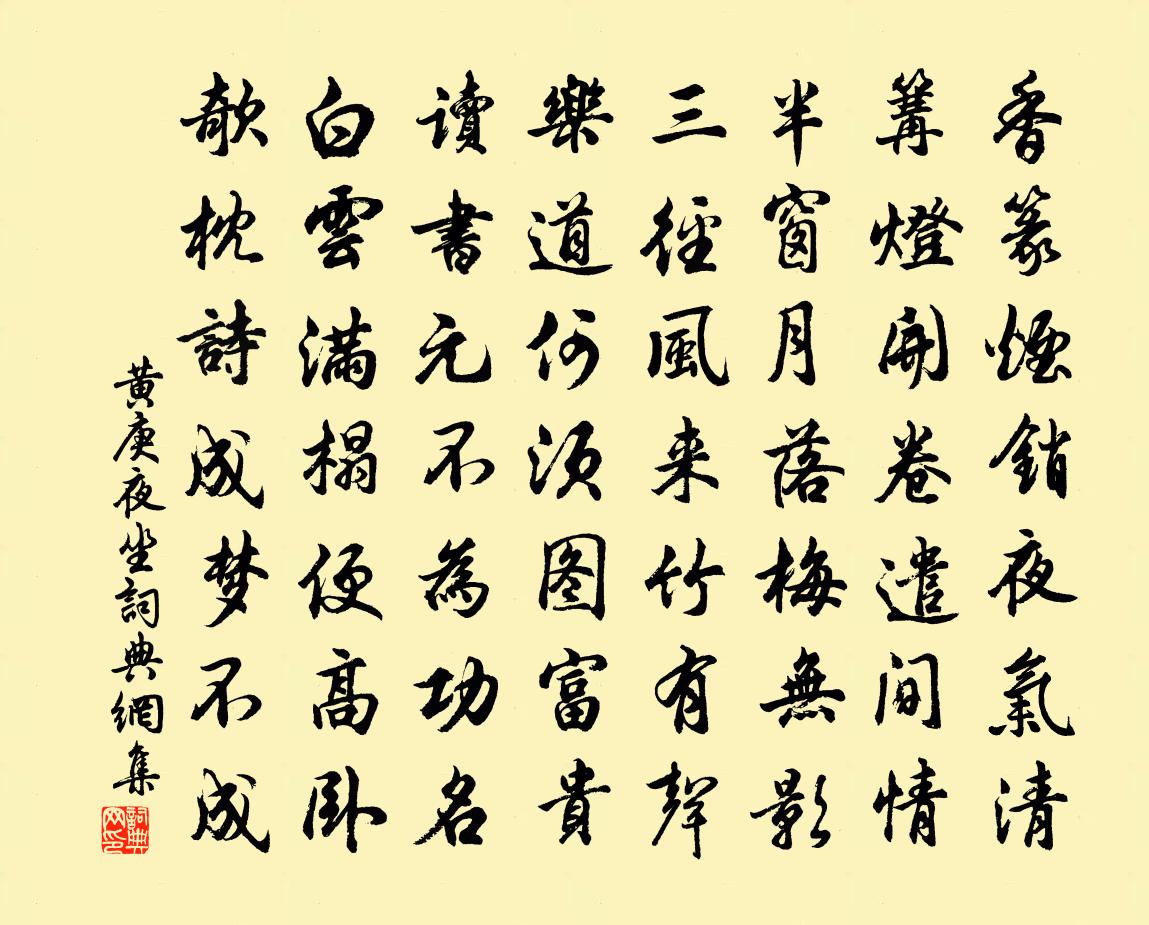 香篆煙銷夜氣清
篝燈開卷遣间情
半窗月落梅無影
三徑風来竹有聲
樂道何须图富貴
讀書元不為功名
白雲滿榻便高臥
欹枕詩成梦不成
黃庚夜坐詞典網集
詞典网印